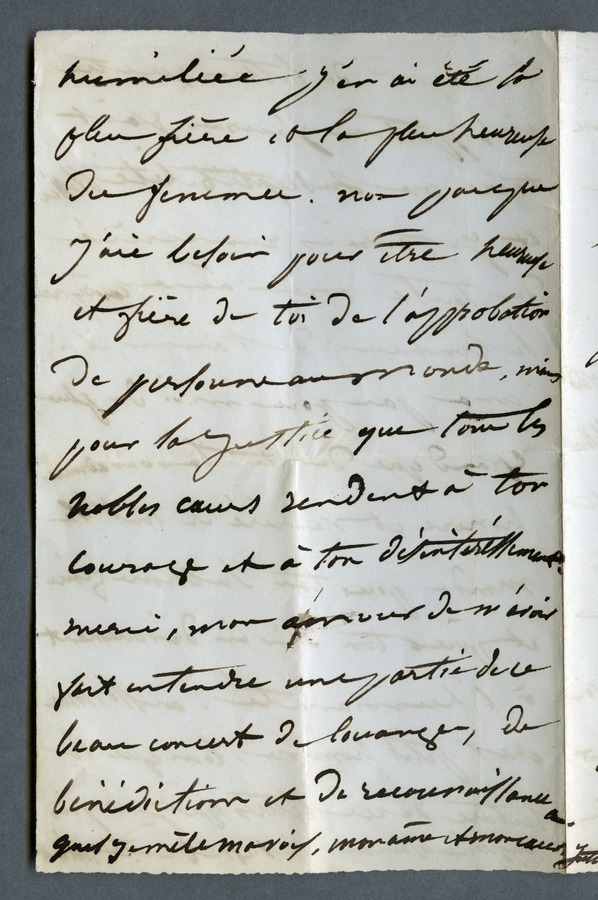 humiliée j'en ai été la
plus fière et la plus heureuse
des femmes. non pas que
j'aie besoin pour être heureuse
et fière de toi de l'approbation
de personne au monde, mais
pour la justice que tous les
nobles cœurs rendent à ton
courage et à ton désintéressement.
merci, mon amour de m'avoir
fait entendre une partie de ce
beau concert de louanges, de
bénédictions et de reconnaissance
auquel je mêle ma voix, mon âme et mon cœur.